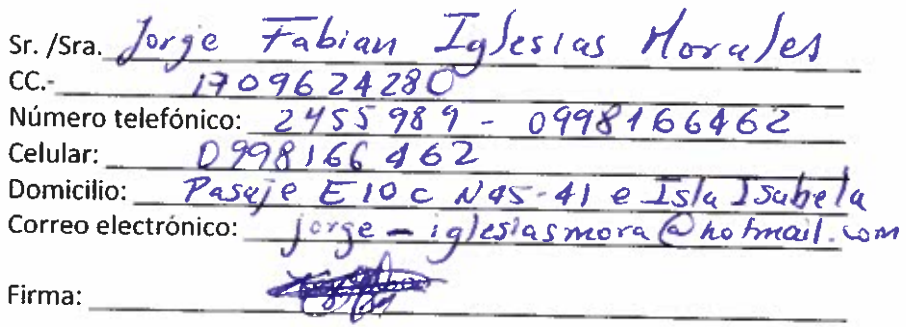 Sr. /Sra. Jorge Fabian Iglesias Morales
CC.- 1709624280
Número telefónico: 2455989 - 0998166462
Celular: 0998166462
Domicilio: Pasaje E10C N45-41 e Isla Isabela
Correo electrónico: jorge-iglesiasmora@hotmail.com
Firma: